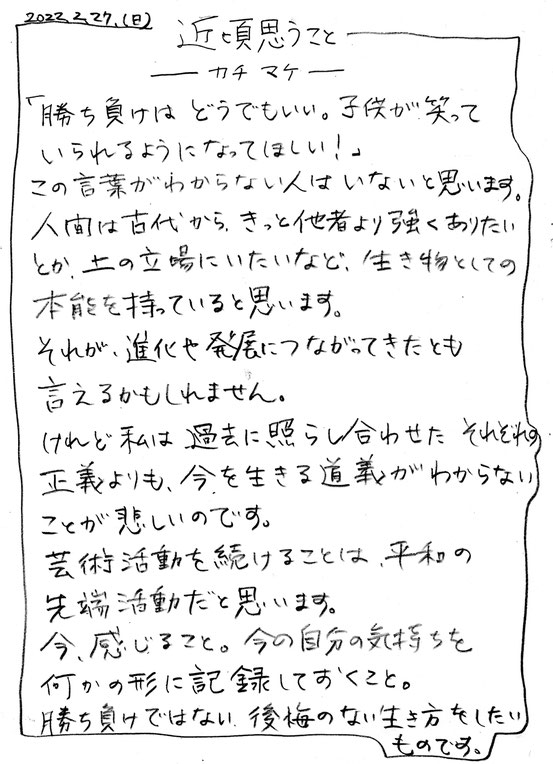 2022.2.27.(日)
近頃思うこと
― カチ マケ ―
「勝ち負けは どうでもいい。子供が笑って
いられるようになってほしい！」
この言葉がわからない人はいないと思います。
人間は古代から、きっと他者より強くありたい
とか、上の立場にいたいなど、生き物としての
本能を持っていると思います。
それが、進化や発展につながってきたとも
言えるかもしれません。
けれど私は過去に照らし合わせた それぞれの
正義よりも、今を生きる道義がわからない
ことが悲しいのです。
芸術活動を続けることは、平和の
先端活動だと思います。
今、感じること。今の自分の気持ちを
何かの形に記録しておくこと。
勝ち負けではない、後悔のない生き方をしたい
ものです。